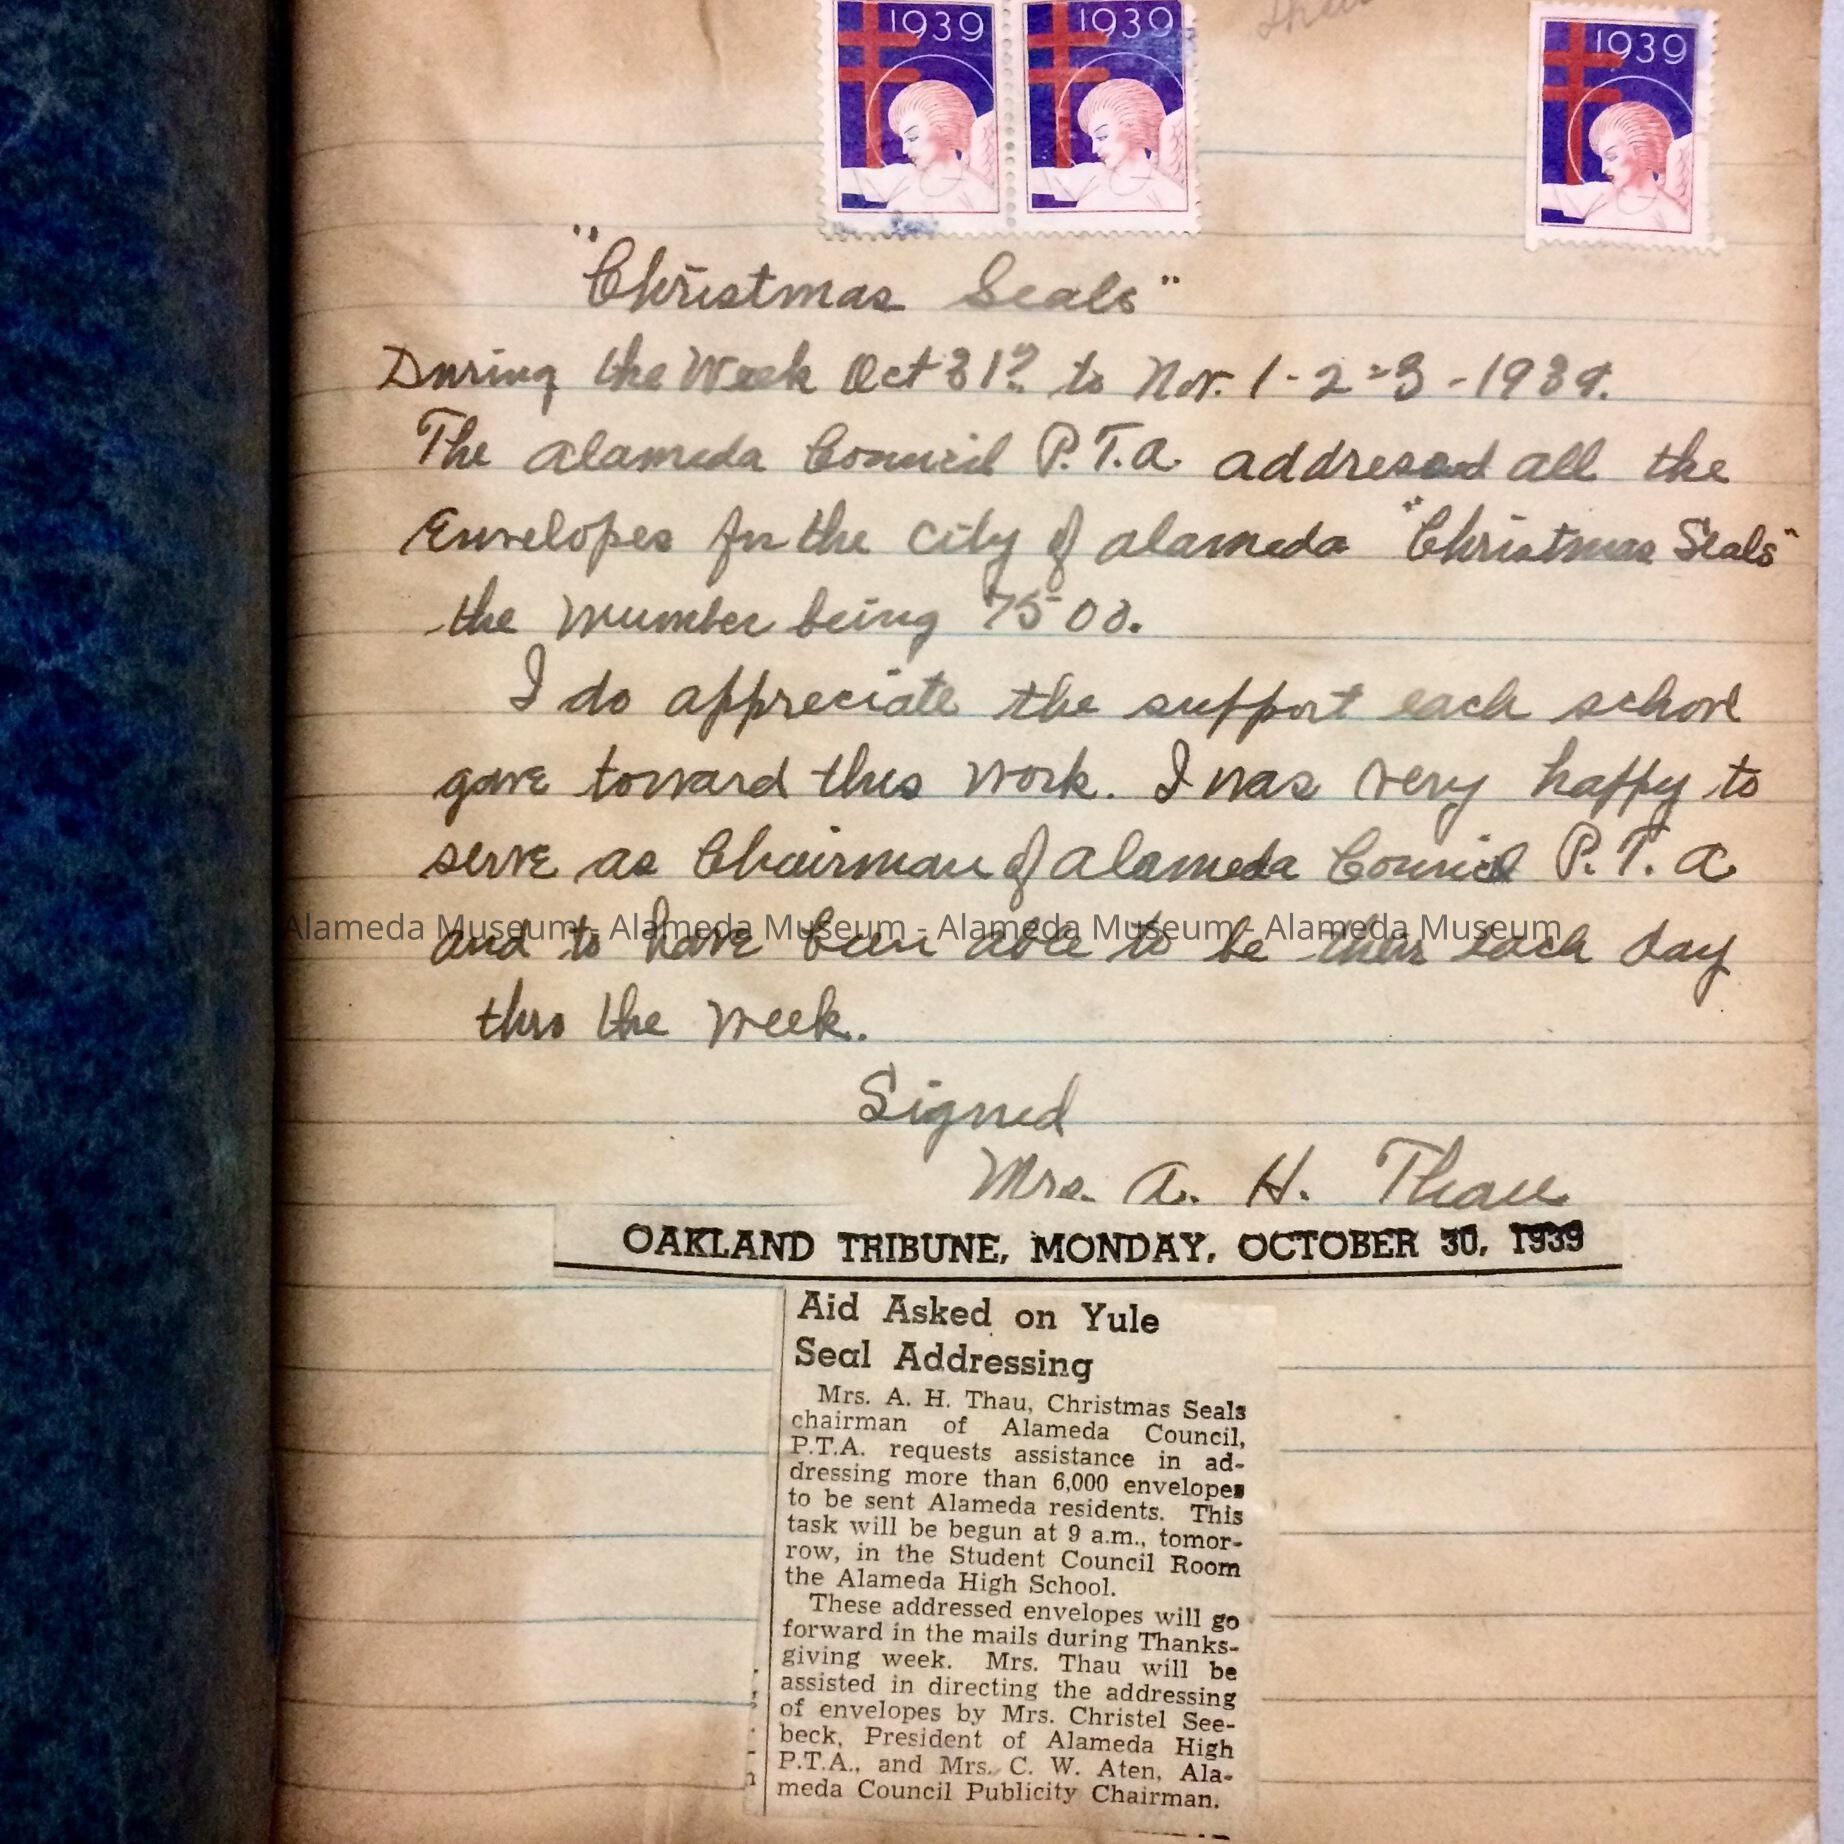 1939 1939 1939
"Christmas Seals"
During the Week Oct 31? to Nov. 1-2=3-1939.
The Alameda Council P.T.A. addressed all the
Envelopes for the City of Alameda "Christmas Seals"
the number being 7500.
I do appreciate the support each school
gave toward this work. I was very happy to
serve as Chairman of Alameda Council P.T.A
Alameda Museum - Alameda Museum - Alameda Museum - Alameda Museum
and to have been able to be there each day
thro the week.
Signed
Mrs. A. H. Thau
OAKLAND TRIBUNE, MONDAY, OCTOBER 30, 1939
Aid Asked on Yule
Seal Addressing
Mrs. A. H. Thau, Christmas Seals
chairman of Alameda Council,
P.T.A. requests assistance in ad-
dressing more than 6,000 envelopes
to be sent Alameda residents. This
task will be begun at 9 a.m., tomor-
row, in the Student Council Room
the Alameda High School.
These addressed envelopes will go
forward in the mails during Thanks-
giving week. Mrs. Thau will be
assisted in directing the addressing
of envelopes by Mrs. Christel See-
beck, President of Alameda High
P.T.A., and Mrs. C. W. Aten, Ala-
meda Council Publicity Chairman.